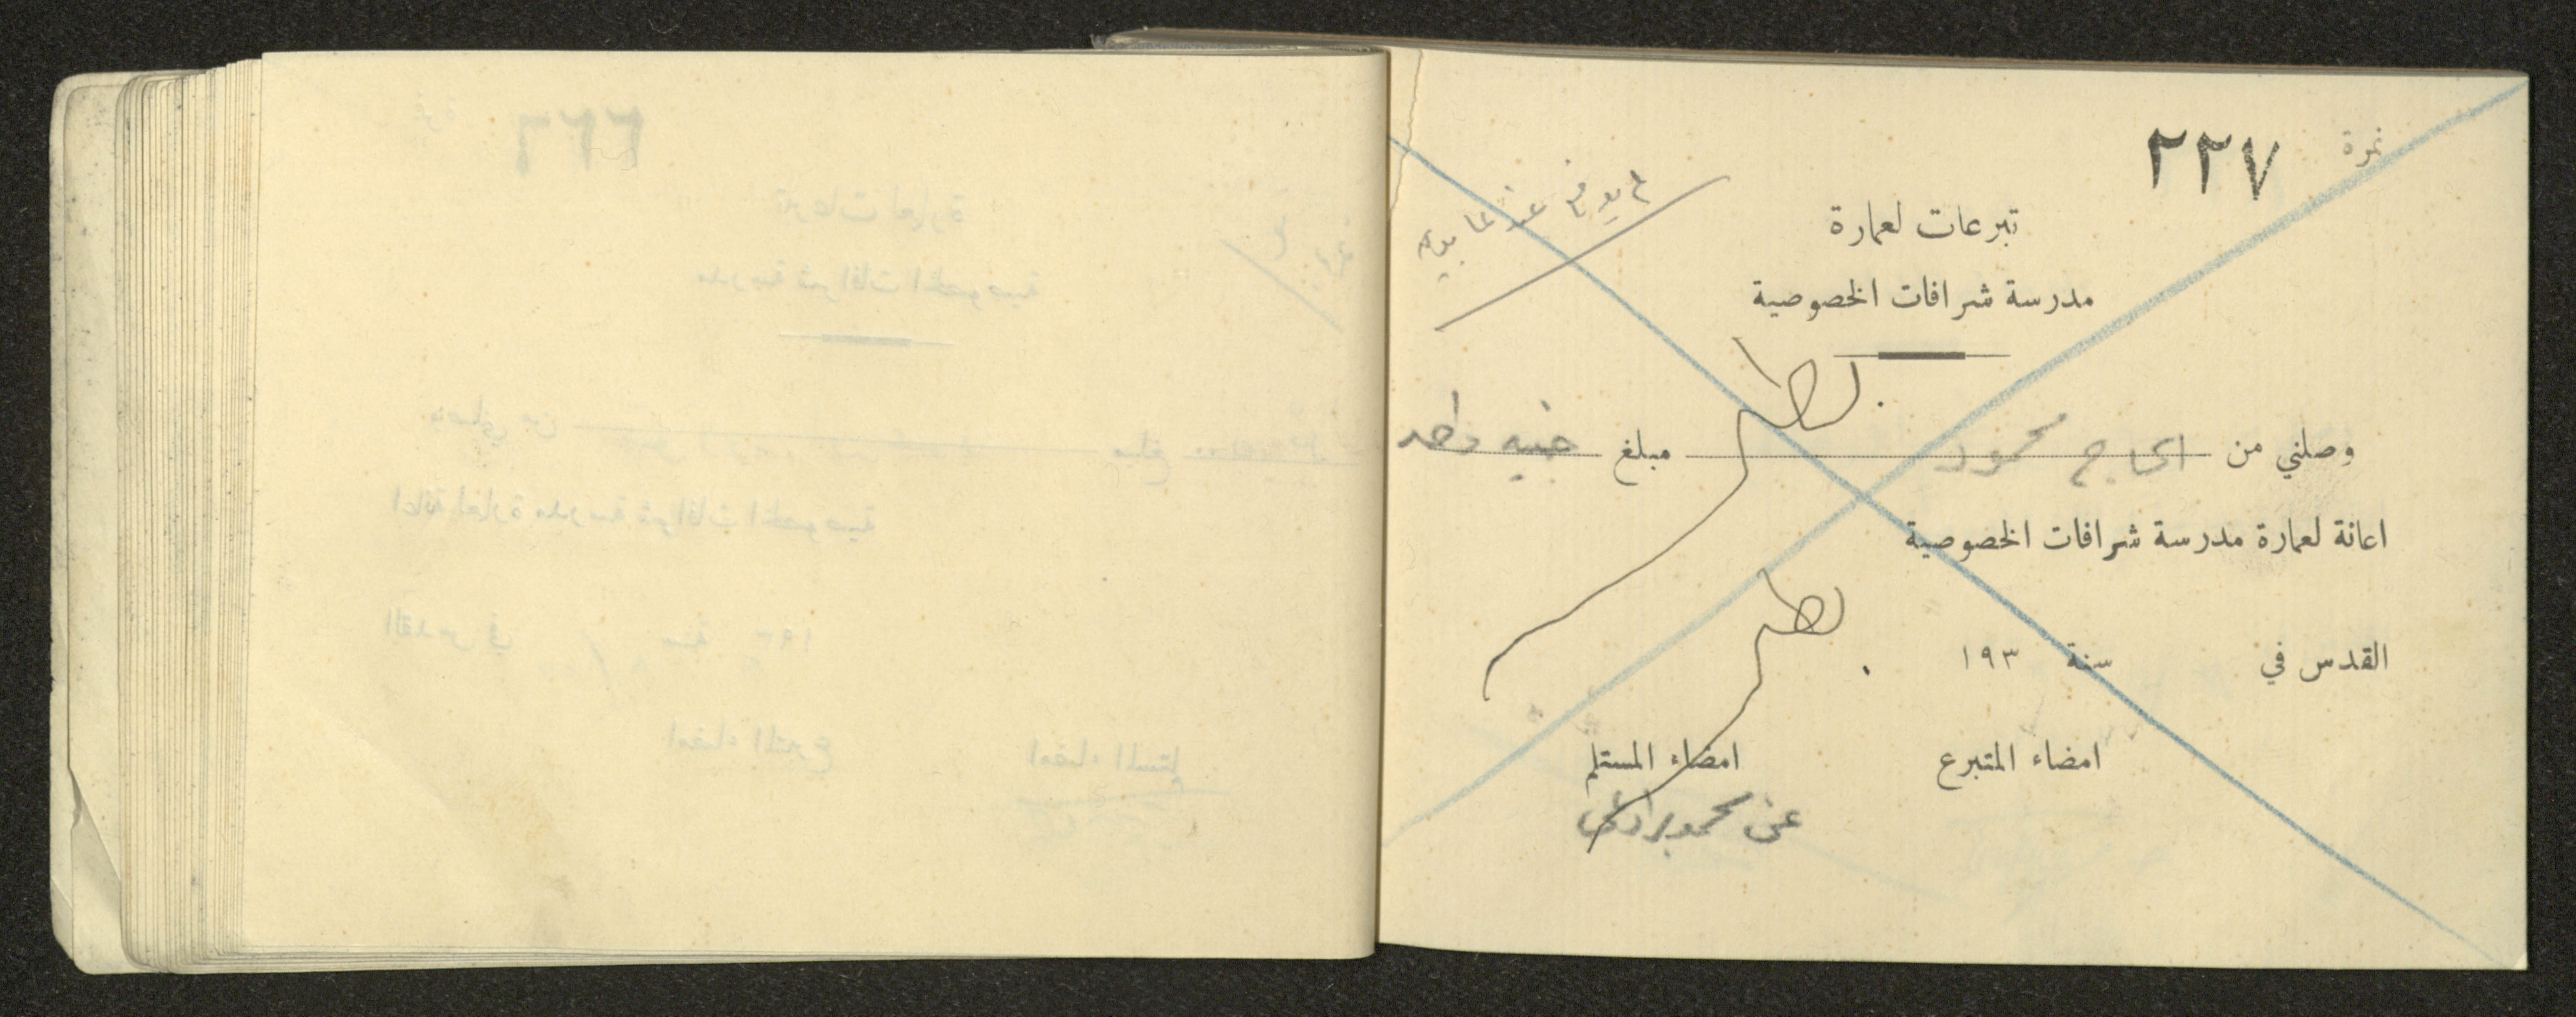 نمرة ٢٢٧
تبرعات لعمارة
مدرسة شرافات الخصوصية
وصلني من الحاج محمود مبلغ جنيه واحد
اعانة لعمارة مدرسة شرافات الخصوصية
القدس في سنة ١٩٣
امضاء المتبرع امضاء المستلم
عن محمود